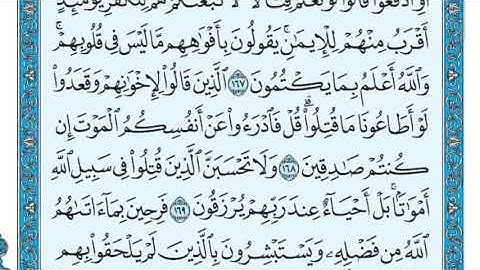 أَوِ ٱدۡفَعُواْۖ قَالُواْ لَوۡ نَعۡلَمُ قِتَالٗا لَّٱتَّبَعۡنَٰكُمۡۗ هُمۡ لِلۡكُفۡرِ يَوۡمَئِذٍ
أَقۡرَبُ مِنۡهُمۡ لِلۡإِيمَٰنِۚ يَقُولُونَ بِأَفۡوَٰهِهِم مَّا لَيۡسَ فِي قُلُوبِهِمۡۚ
وَٱللَّهُ أَعۡلَمُ بِمَا يَكۡتُمُونَ ١٦٧ ٱلَّذِينَ قَالُواْ لِإِخۡوَٰنِهِمۡ وَقَعَدُواْ
لَوۡ أَطَاعُونَا مَا قُتِلُواْۗ قُلۡ فَٱدۡرَءُواْ عَنۡ أَنفُسِكُمُ ٱلۡمَوۡتَ إِن
كُنتُمۡ صَٰدِقِينَ ١٦٨ وَلَا تَحۡسَبَنَّ ٱلَّذِينَ قُتِلُواْ فِي سَبِيلِ ٱللَّهِ
أَمۡوَٰتَۢاۚ بَلۡ أَحۡيَآءٌ عِندَ رَبِّهِمۡ يُرۡزَقُونَ ١٦٩ فَرِحِينَ بِمَآ ءَاتَىٰهُمُ
ٱللَّهُ مِن فَضۡلِهِۦ وَيَسۡتَبۡشِرُونَ بِٱلَّذِينَ لَمۡ يَلۡحَقُواْ بِهِم